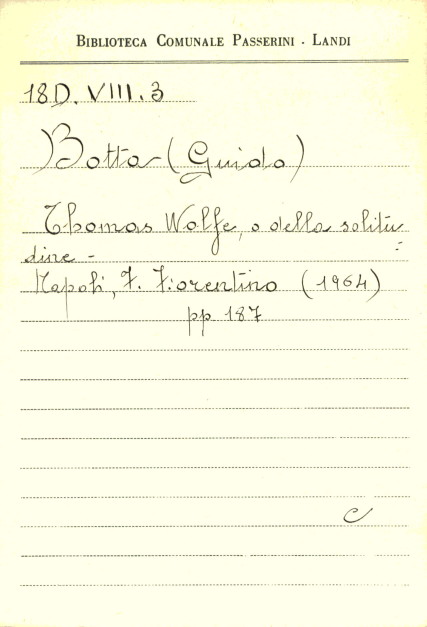 BIBLIOTECA COMUNALE PASSERINI - LANDI
18D. VIII. 3
Botta (Guido)
Thomas Wolfe, o della solitu=
dine -
Napoli, F. Fiorentino (1964)
pp 187
C